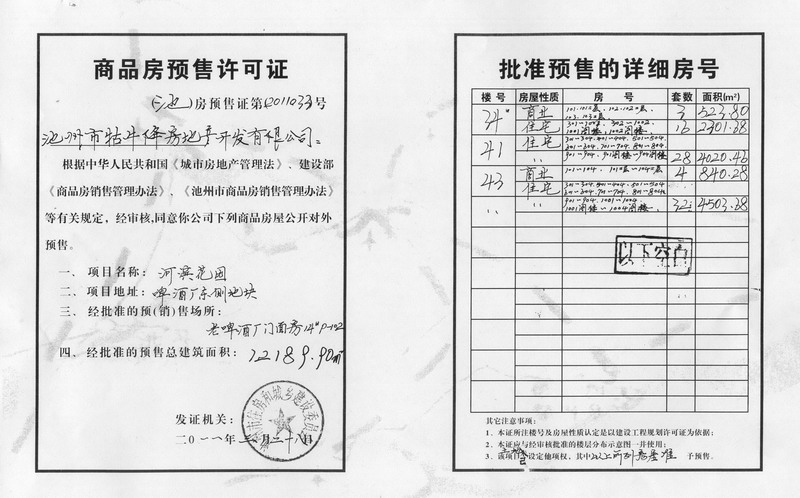 商品房预售许可证
(池)房预售证第(2011033号
池州市牯牛降房地产开发有限公司:
根据中华人民共和国《城市房地产管理法》、建设部
《商品房销售管理办法》、《池州市商品房销售管理办法》
等有关规定，经审核,同意你公司下列商品房屋公开对外
预售。
一、项目名称：河滨花园
二、项目地址：啤酒厂东侧地块
三、经批准的预(销)售场所：
老啤酒厂门面房14#
四、经批准的预售总建筑面积：12189.90m²
发证机关：
池州市住房和城乡建设委员会
二0一一年三月二十八日
批准预售的详细房号
楼号 房屋性质 房号 套数 面积(m²)
34# 商业 3 523.80
住宅 301~1002 16 2301.38
41 住宅 301~304、401~404、501~504
〃 901~904 28 4020.46
43 商业 101~104 4 840.28
住宅 301~304、401~404、501~504
〃 901~904、1001~1004 32 4503.38
以下空白
其它注意事项：
1、本证所注楼号及房屋性质认定是以建设工程规划许可证为依据；
2、本证应与经审核批准的楼层分布示意图一并使用；
3、该项目 设定他项权，其中以上所列房屋准予预售。